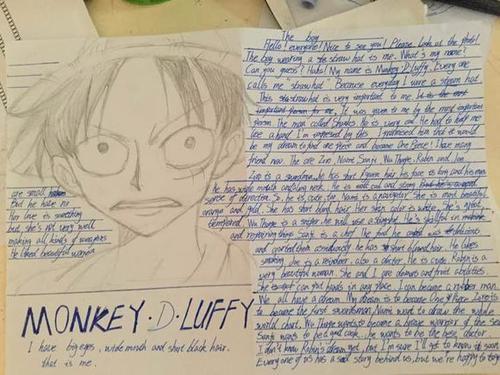 The boy
Hello! everyone! Nice to see you! Please look at the photo!
The boy wearing a straw hat is me. What's my name?
Can you guess? Haha! My name is Monkey D Luffy. Every one
calls me straw hat. Because everyday I wore a straw hat.
This straw hat is very important to me. It is the most
important person for me. It was given to me by the most important
person. The man called Shanks. He is very cool. He had to help me
lose a hand. I'm impressed by this. I promised him that it would
be my dream to find one piece and become One Piece! I have many
friend now. The are Zoro Nami Sanji Wu Thorpe Robin and
Zoro is a swordman, he has short green hair, his face is long and his
he has wide mouth and long neck. He is cool and strong
sense of direction. So, he is cute, too. Nami is a navigator. She is most beautiful
orange and gold. She has short long hair. Her
tempered. Wu Thorpe is a sniper. He is good at He's skilled in
and repairing things. Sanji is a chef. The food he cooked was delicious
and he has short blond hair. He likes
smoking. is a reindeer, also a doctor. He is cute. Robin is a
very beautiful woman. She and I are and fruit abilities.
She can hands in any place. I can become a rubber man.
We all have a dream. My dream is to become One Piece. Zoro is
to became the first swordsman, Nami want to draw the whole
world chart. Wu Thorpe wants to become a brave warrior of the sea.
Sanji wants to cook. he wants to be the best doctor.
I don't know Robin's dream yet, but I'm sure I'll get to know it soon.
Everyone of us has a sad story behind us, but we're happy to
are small
But he have no
Her love is something
but, she's not very well
making all kinds of
He liked beautiful woman
MONKEY·D·LUFFY
I have big eyes, wide mouth and short black hair.
that is me.